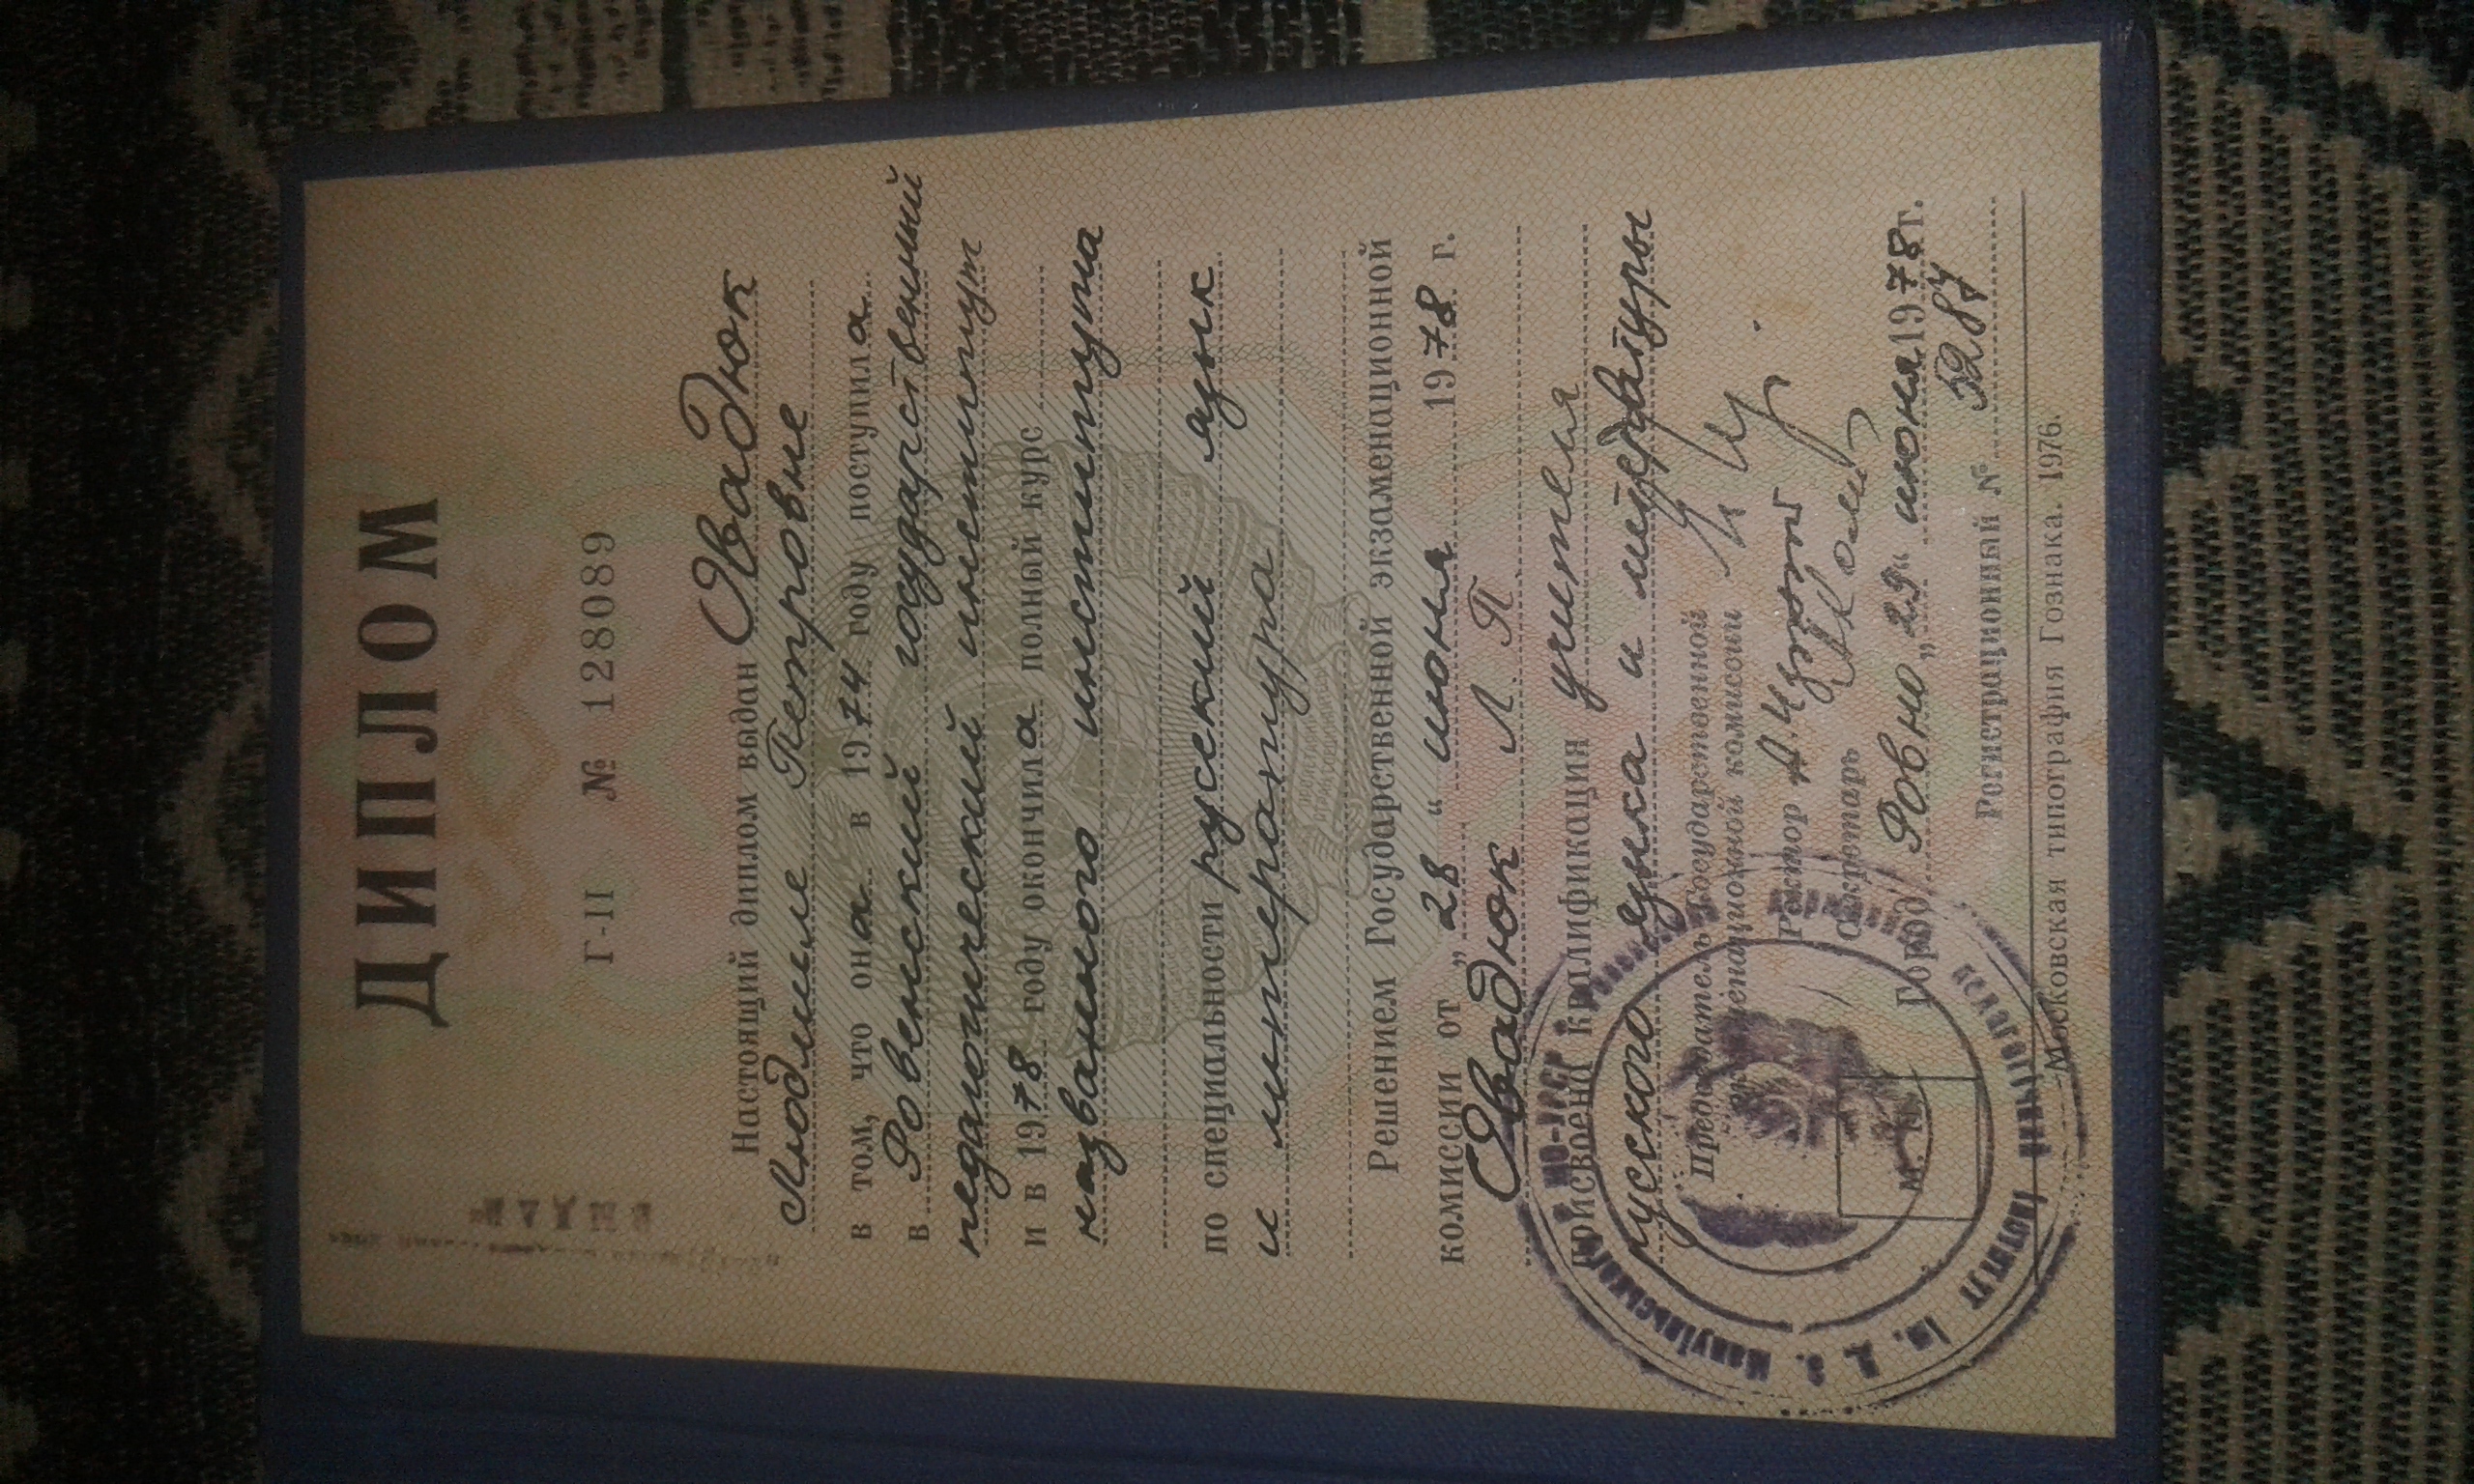 ДИПЛОМ
Г-II № 128089
Настоящий диплом выдан Овадюк
Людмиле Петровне
в том, что она в 1974 году поступила
в Ровенский государственный
педагогический институт
и в 1978 году окончила полный курс
названного института
по специальности русский язык
и литература
Решением Государственной экзаменационной
комиссии от „28“ июня 1978 г.
Овадюк Л. П.
присвоена квалификация учителя
русского языка и литературы
Председатель Государственной
экзаменационной комиссии
Ректор
Секретарь
Город Ровно „29“ июня 1978 г.
Регистрационный № 5287
М. П.
Московская типография Гознака. 1976.